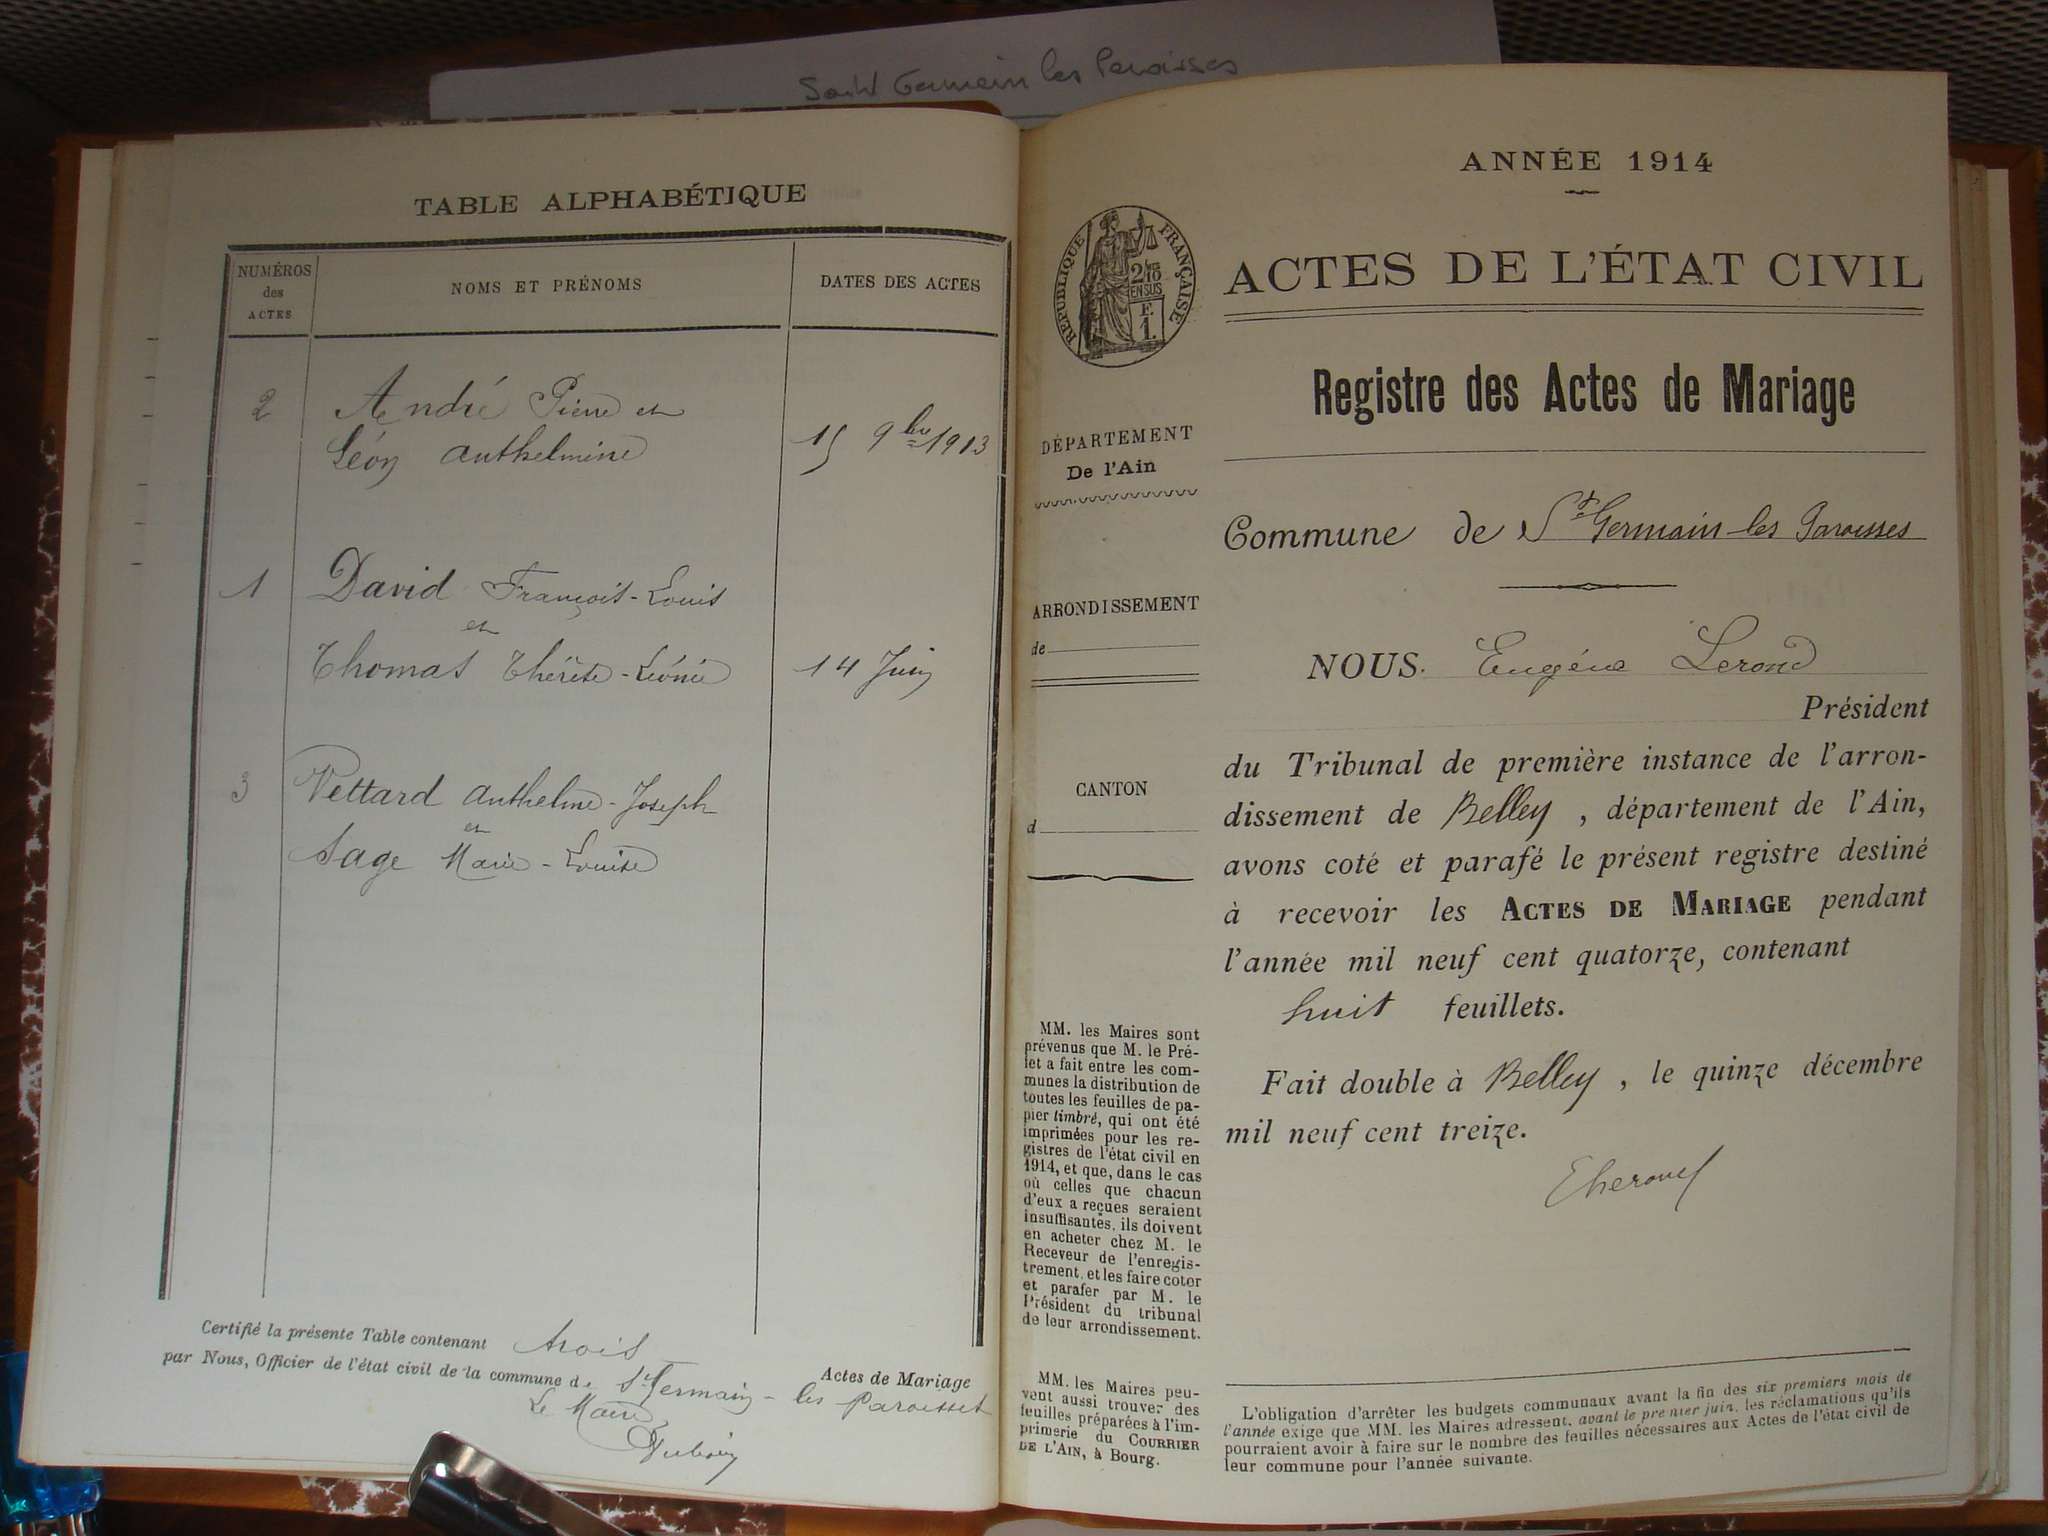 Saint Germain les Paroisses
TABLE ALPHABÉTIQUE
NUMÉROS
des
ACTES
NOMS ET PRÉNOMS
DATES DES ACTES
2
André Pierre et
Léon Anthelmine
15 9bre 1913
1
David François-Louis
et
Thomas Thérèse-Léonie
14 Juin
3
Vettard Anthelme-Joseph
et
Sage Marie-Louise
Certifié la présente Table contenant trois
Actes de Mariage
par Nous, Officier de l'état civil de la commune de St Germain-les Paroisses
Le Maire
ANNÉE 1914
RÉPUBLIQUE FRANÇAISE
2/10
EN SUS
F.
1.
ACTES DE L'ÉTAT CIVIL
Registre des Actes de Mariage
DÉPARTEMENT
De l'Ain
ARRONDISSEMENT
de
CANTON
d
MM. les Maires sont
prévenus que M. le Pré-
fet a fait entre les com-
munes la distribution de
toutes les feuilles de pa-
pier timbré, qui ont été
imprimées pour les re-
gistres de l'état civil en
1914, et que, dans le cas
où celles que chacun
d'eux a reçues seraient
insuffisantes, ils doivent
en acheter chez M. le
Receveur de l'enregis-
trement, et les faire coter
et parafer par M. le
Président du tribunal
de leur arrondissement.
MM. les Maires peu-
vent aussi trouver des
feuilles préparées à l'im-
primerie du COURRIER
DE L'AIN, à Bourg.
Commune de St Germain-les Paroisses
NOUS. Eugène Lerond
Président
du Tribunal de première instance de l'arron-
dissement de Belley, département de l'Ain,
avons coté et parafé le présent registre destiné
à recevoir les ACTES DE MARIAGE pendant
l'année mil neuf cent quatorze, contenant
huit feuillets.
Fait double à Belley, le quinze décembre
mil neuf cent treize.
L'obligation d'arrêter les budgets communaux avant la fin des six premiers mois de
l'année exige que MM. les Maires adressent, avant le premier juin, les réclamations qu'ils
pourraient avoir à faire sur le nombre des feuilles nécessaires aux Actes de l'état civil de
leur commune pour l'année suivante.